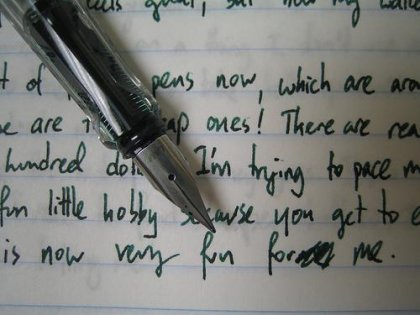 good, but now my wallet
t of pens now, which are aro
e are ap ones! There are rea
hundred do I'm trying to pace m
fun little hobby because you get to e
is now very fun for me.